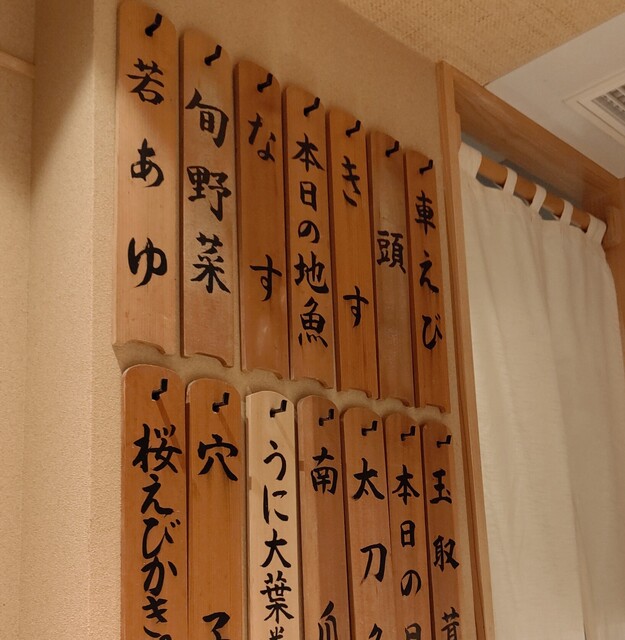 車えび
頭
きす
本日の地魚
なす
旬野菜
若あゆ
玉取茸
本日の貝
太刀
南瓜
うに大葉
穴子
桜えびかき